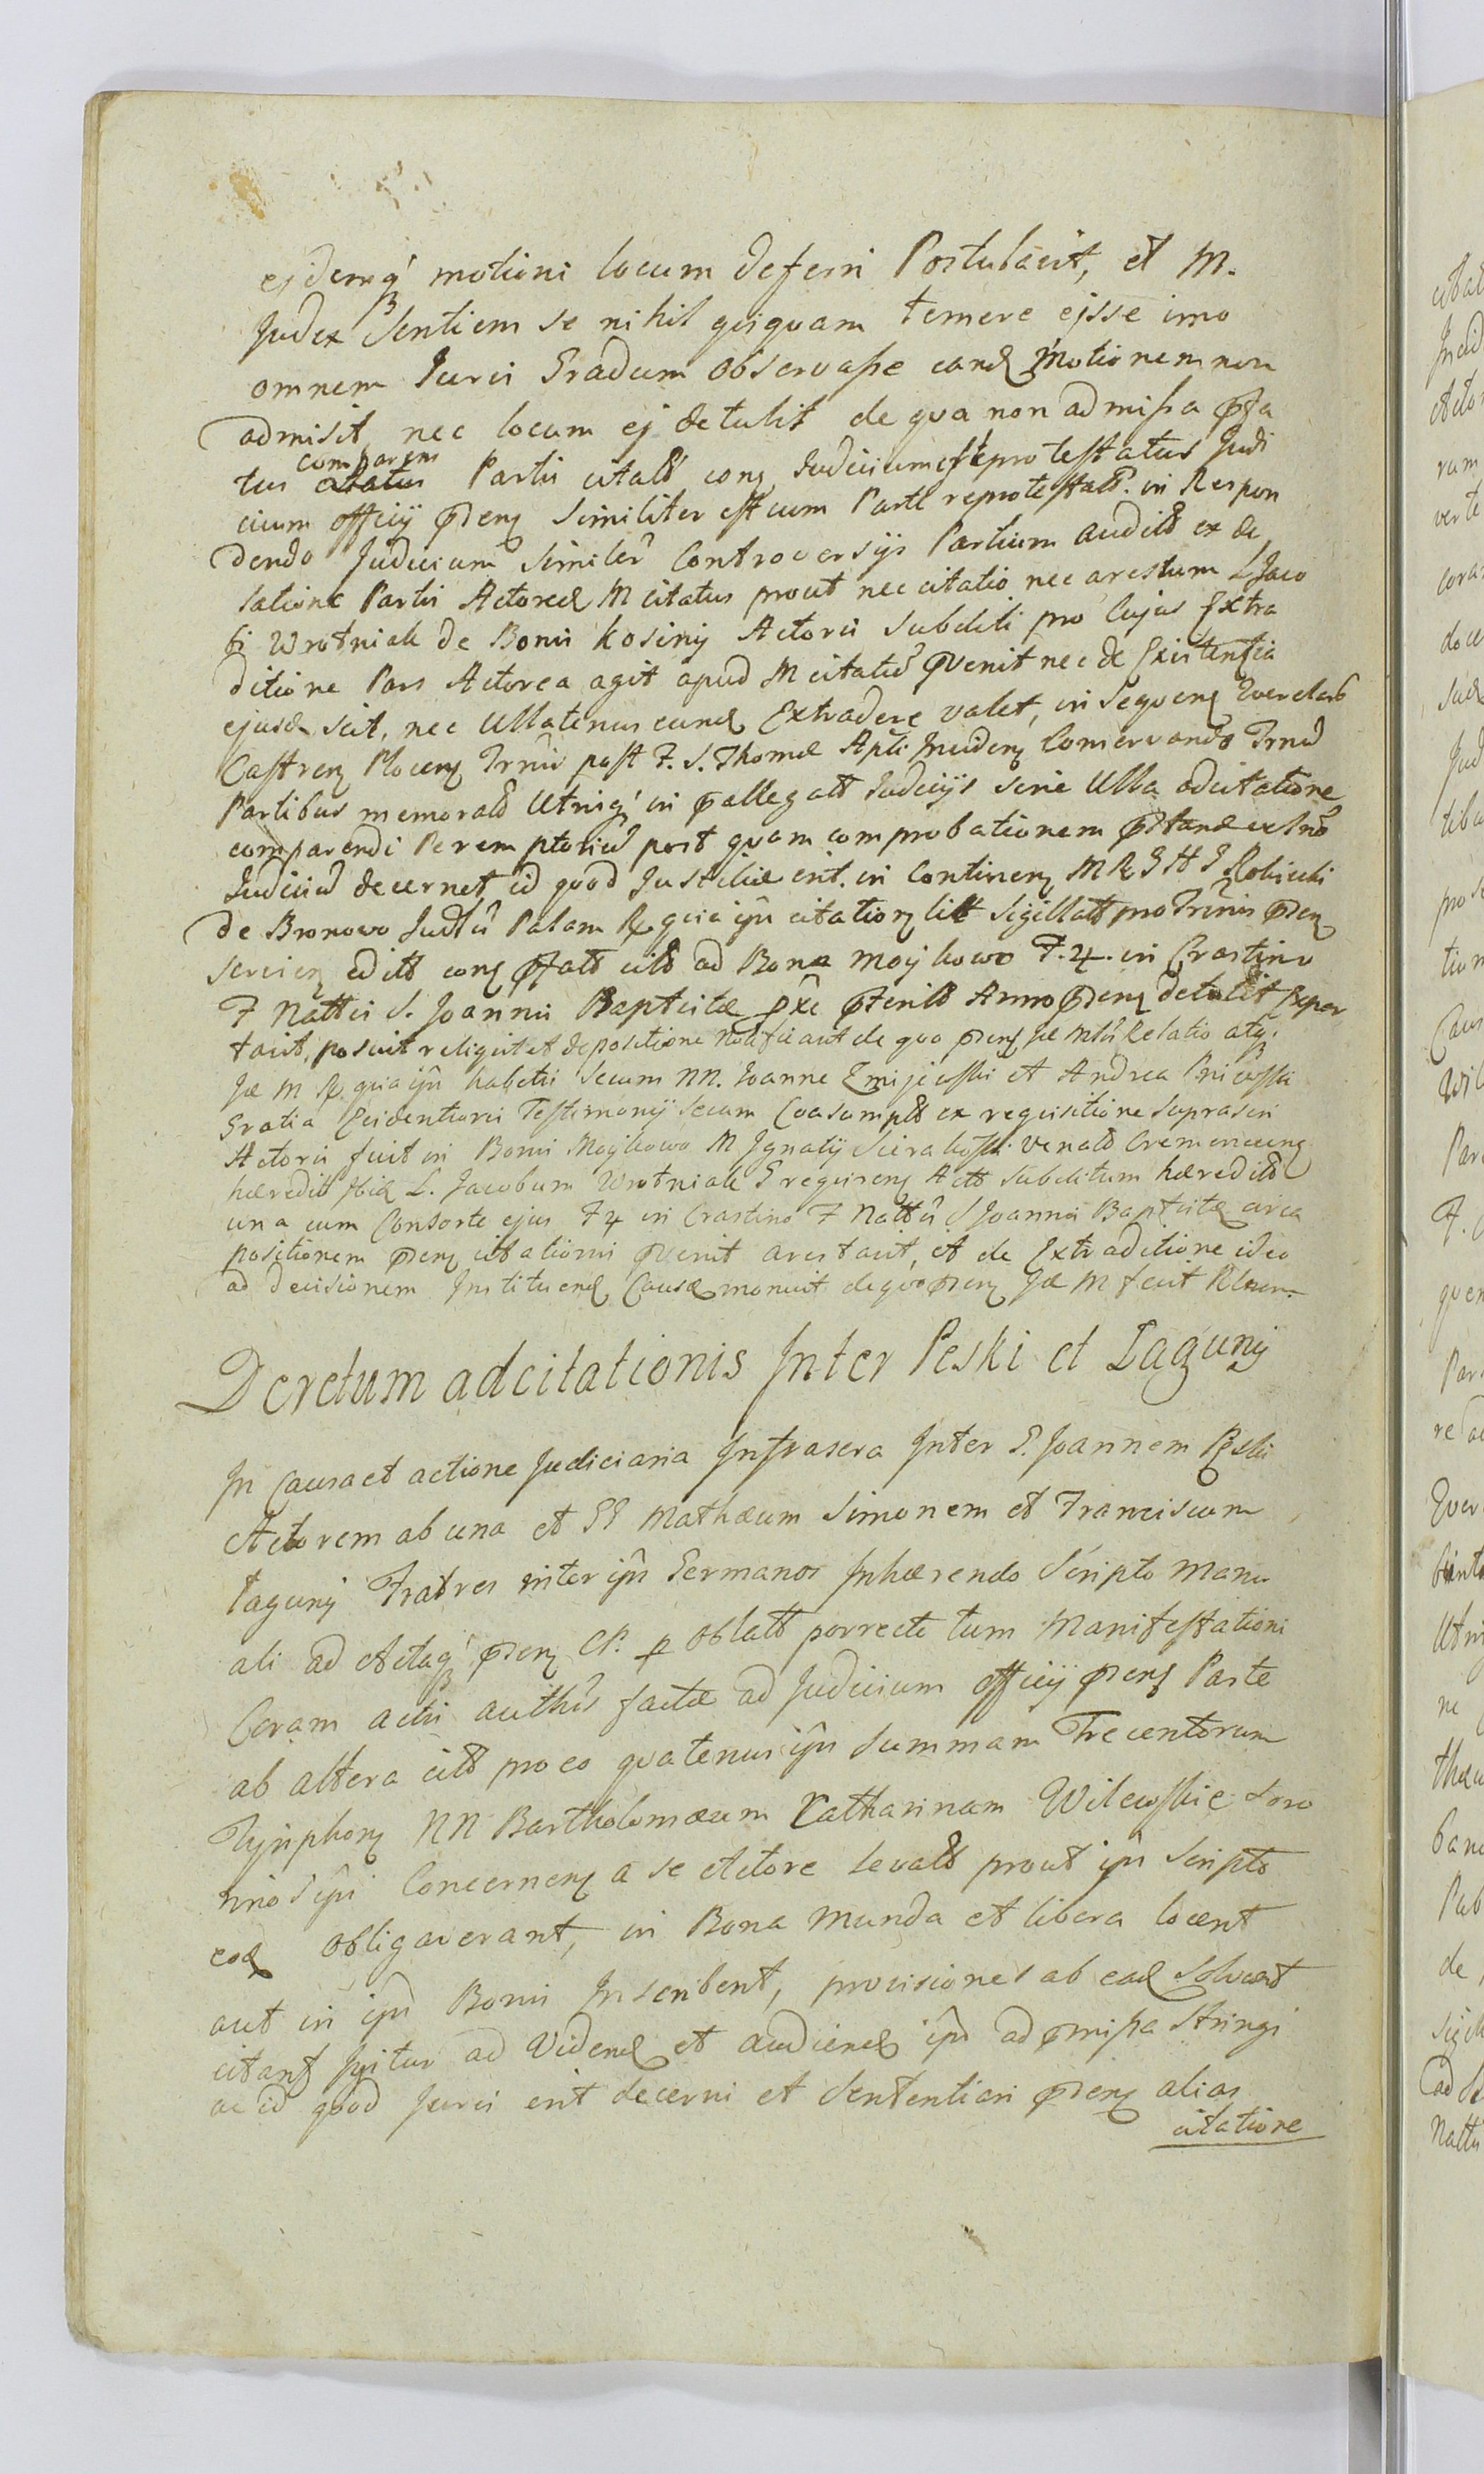 ejdemq' motioni locum deferri Postulavit, et M.
Judex Sentiens se nihil quiquam temere ejsse imo
omnem Juris Gradum observasse eand Motionem non
admisit, nec locum ej detulit de qua non admissa pfa
tus comparens Partis citatae cong Judicium est protestatus Judi
cium officij pseng Similiter est cum Parte reprotestata. in Respon
dendo Judicium Similer Controversijs Partium auditis ex de
latione Partis Actoreae M citatus prout nec citatio nec arestum L Jaco
bi Wrotniak de Bonis Kosiny Actoris Subditi pro cujus Extra
ditione Pars Actorea agit apud M citatum pvenit nec de Existentia
ejusd scit, nec Ullatenus eund Extradere valet, in sequeng Querelarum
Castreng Ploceng Trnis post F. S. Thomae Apli Incideng Conservando Trnum
Partibus memoratis Utrisq' in pallegatt Judicijs sine Ulla adcitatione
comparendi Peremptorium post quam comprobationem pstand exInde
Judicium decernet, id quod Justitiae erit. in Contineng M R G H S Robicki
de Bronowo Judlis Palam Rgnia ijn citationg litt Sigillatt pro Trinis pseng
servieng editt cong pfatt citt ad Bona Moykowo F. 4. in Crastino
F Nattis S. Joannis Baptistae pxe pteritt Anno pseng detulit Repor
tavit, posuit reliquit et de positione Notificavit de quo pseng Je Mtr Relatio atq.
Je M R. gnia ijn habetis Secum NN. Joanne Zmijewski et Andrea Pniewski
Gratia Evidentioris Testimonij Secum Coasumptt ex requisitione Suprascri
Actoris fuit in Bonis Moykowo M Ignatij Sierakoski venatt Cremeneceng
haereditt Ibid L. Jacobum Wrotniak G requireng Actt Subditum haereditt
una cum Consorte ejus F 4 in Crastino F Nattis S Joannis Baptistae circa
positionem pseng citationis pvenit arestavit, et de Extraditione ideo
ad decisionem Instituend Causae monuit de quo pseng Je M fecit Rlnem
Decretum adcitationis Inter Peski et Laguny
In Causa et actione Judiciaria Infrascra Inter G. Joannem Peski
Actorem ab una et GG Mathaeum Simonem et Franciscum
Laguny Fratres inter ijn Germanos Inhaerendo Scripto Manu
ali ad Actaq' pseng CP. p oblatt porrecte tum Manifestationi
Coram actis authis factae ad Judicium officij pseng Parte
ab altera citt pro eo quatenus ijn Summam Trecentorum
Tynphong NN Bartholomaeum Catharinam Wilewskie Foro
nnos ijn Concerneng a se Actore levatt prout ijn Scripto
eod obligaverant, in Bona munda et libera locent
aut in ijn Bonis Inscribent, provisiones ab ead Solvant
citant Igitur ad Vidend et audiend ijn ad pmissa Stringi
ac id quod Juris erit decerni et Sententiari pseng alias
citatione